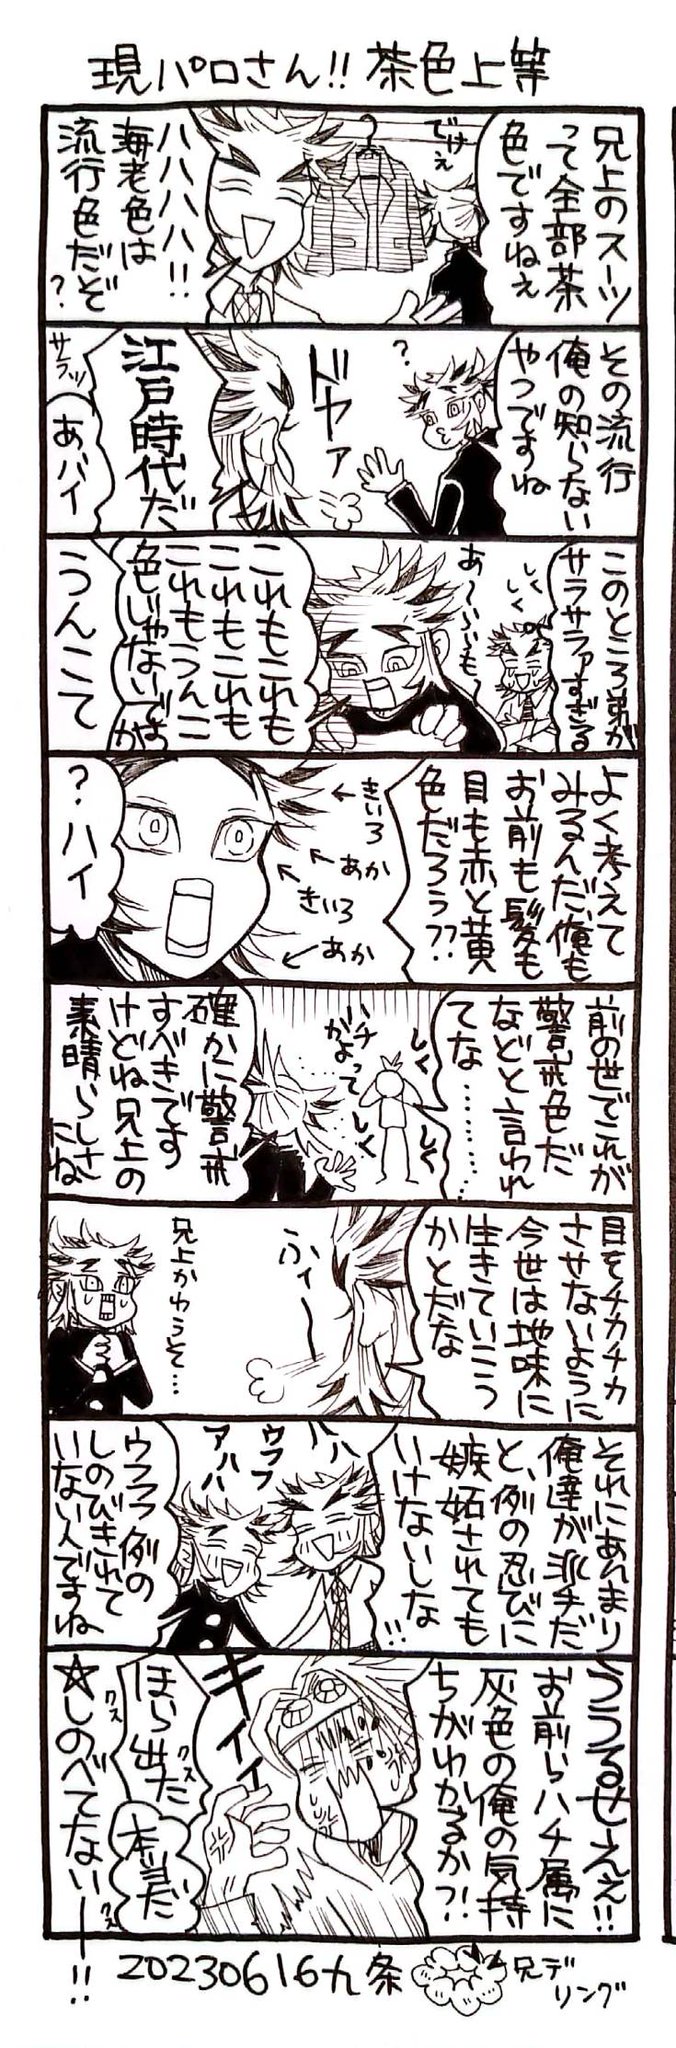 現パロさん!! 茶色上等
兄上のスーツ
って全部茶
色ですねぇ
でけぇ
ハハハハ!!
海老色は
流行色だぞ
?
その流行
俺の知らない
やつですね
?
ドヤァ
江戸時代だ
サラッ
あ、ハイ
このところ弟が
サラサラァすぎる
しくしく
あ〜
これもこれも
これもこれも
これもうんこ
色じゃないですか
うんこて
よく考えて
みるんだ、俺も
お前も髪も
目も赤と黄
色だろう??
←きいろ
←あか
←きいろ
←あか
?ハイ
前の世でこれが
警戒色だ
などと言われ
てな………
しくしく
しく
しく
ハチ
かよって
確かに警戒
すべきです
けどね兄上の
素晴らしさ
にね
目をチカチカ
させないように
今世は地味に
生きていこう
かとだな
ふィー
兄上かわうそ…
それにあんまり
俺達が派手だ
と、例の忍びに
嫉妬されても
いけないしな
!!
ハハ
ウフフ
アハハ
ウフフ例の
しのびきれて
いない人ですね
ううるせぇぇ!!
お前らハチ属に
灰色の俺の気持
ちがわかるか?!
キィィィ
ほら出た
クスクス
本当だ
☆しのべてないーー!!
クス
20230616九条
兄デ
リング